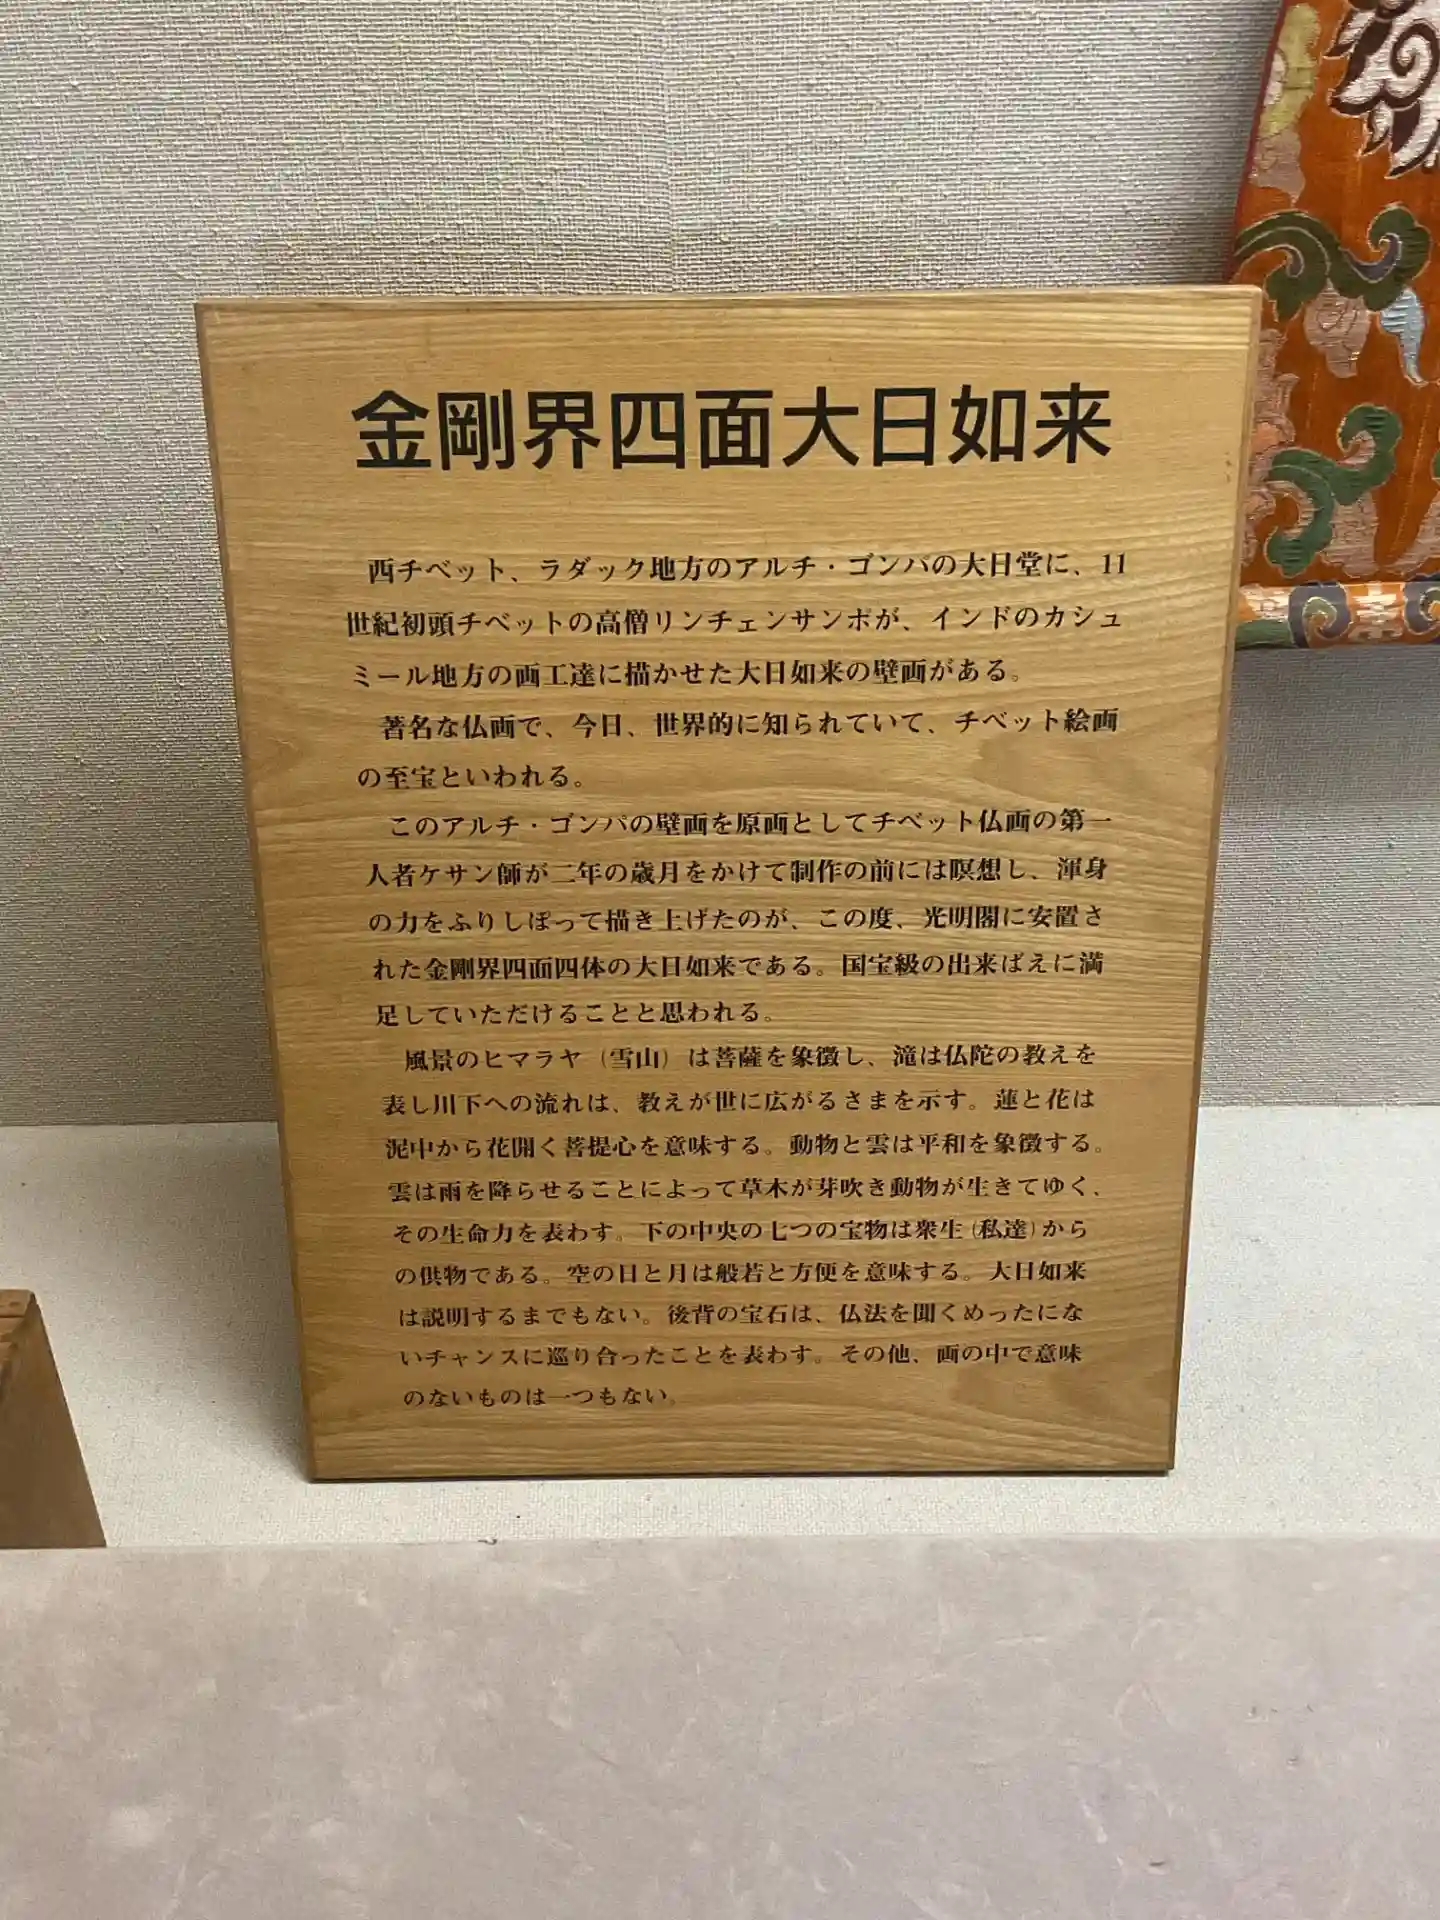 金剛界四面大日如来
西チベット、ラダック地方のアルチ・ゴンパの大日堂に、11
世紀初頭チベットの高僧リンチェンサンポが、インドのカシュ
ミール地方の画工達に描かせた大日如来の壁画がある。
著名な仏画で、今日、世界的に知られていて、チベット絵画
の至宝といわれる。
このアルチ・ゴンパの壁画を原画としてチベット仏画の第一
人者ケサン師が二年の歳月をかけて制作の前には瞑想し、渾身
の力をふりしぼって描き上げたのが、この度、光明閣に安置さ
れた金剛界四面四体の大日如来である。国宝級の出来ばえに満
足していただけることと思われる。
風景のヒマラヤ（雪山）は菩薩を象徴し、滝は仏陀の教えを
表し川下への流れは、教えが世に広がるさまを示す。蓮と花は
泥中から花開く菩提心を意味する。動物と雲は平和を象徴する。
雲は雨を降らせることによって草木が芽吹き動物が生きてゆく、
その生命力を表わす。下の中央の七つの宝物は衆生(私達)から
の供物である。空の日と月は般若と方便を意味する。大日如来
は説明するまでもない。後背の宝石は、仏法を聞くめったにな
いチャンスに巡り合ったことを表わす。その他、画の中で意味
のないものは一つもない。